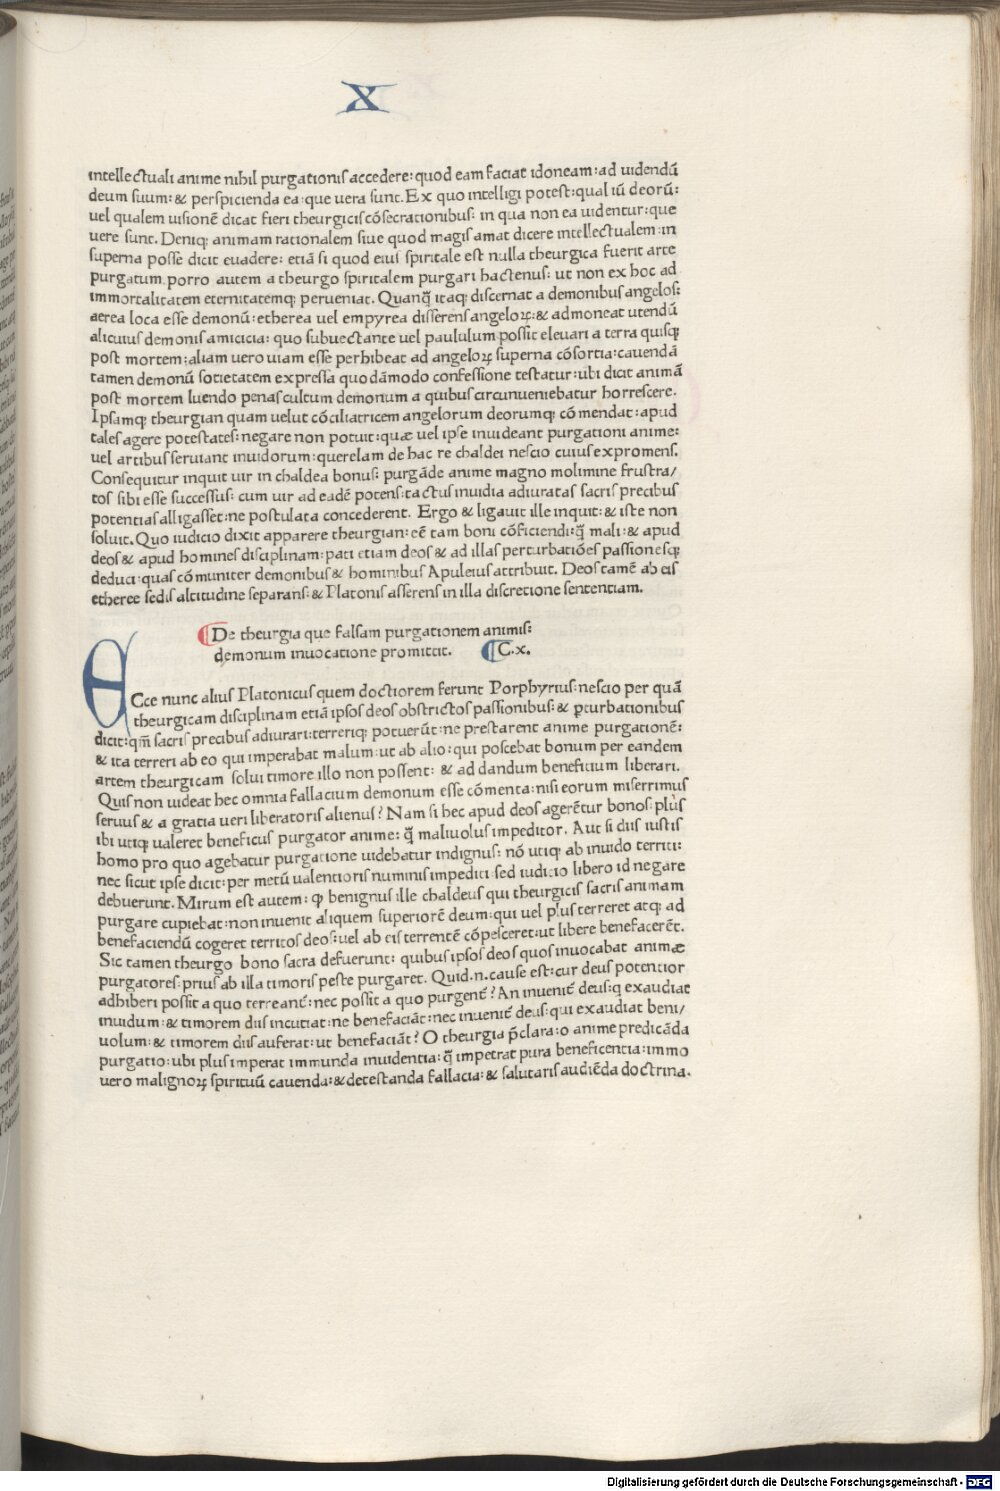 X
intellectuali anime nihil purgationis accedere: quod eam faciat idoneam: ad uidendū
deum suum: & perspicienda ea: que uera sunt. Ex quo intelligi potest: qualiū deorū:
uel qualem uisionē dicat fieri theurgicis cōsecrationibus: in qua non ea uidentur: que
uere sunt. Deniq; animam rationalem siue quod magis amat dicere intellectualem: in
superna posse dicit euadere: etiā si quod eius spiritale est nulla theurgica fuerit arte
purgatum. porro autem a theurgo spiritalem purgari hactenus: ut non ex hoc ad
immortalitatem eternitatemq; perueniat. Quanq̄ itaq; discernat a demonibus angelos:
aerea loca esse demonū: etherea uel empyrea disserens angeloꝝ: & admoneat utendū
alicuius demonis amicicia: quo subuectante uel paululum possit eleuari a terra quisq;
post mortem: aliam uero uiam esse perhibeat ad angeloꝝ superna cōsortia: cauendā
tamen demonū societatem expressa quodāmodo confessione testatur: ubi dicit animā
post mortem luendo penas cultum demonum a quibus circunueniebatur horrescere.
Ipsamq; theurgian quam uelut cōciliatricem angelorum deorumq; cōmendat: apud
tales agere potestates: negare non potuit: quæ uel ipse inuideant purgationi anime:
uel artibus seruiant inuidorum: querelam de hac re chaldei nescio cuius expromens.
Consequitur inquit uir in chaldea bonus: purgāde anime magno molimine frustra/
tos sibi esse successus: cum uir ad eadē potens: tactus inuidia adiuratas sacris precibus
potentias alligasset: ne postulata concederent. Ergo & ligauit ille inquit: & iste non
soluit. Quo iudicio dixit apparere theurgian: eē tam boni cōficiendi: q̄ mali: & apud
deos & apud homines disciplinam: pati etiam deos & ad illas perturbatiōes passionesq;
deduci: quas cōmuniter demonibus & hominibus Apuleius attribuit. Deos tamē ab eis
etheree sedis altitudine separans: & Platonis asserens in illa discretione sententiam.
De theurgia que falsam purgationem animis:
demonum inuocatione promittit. C.x.
Ecce nunc alius Platonicus quem doctiorem ferunt Porphyrius: nescio per quā
theurgicam disciplinam etiā ipsos deos obstrictos passionibus: & ꝑturbationibus
dicit: qm̄ sacris precibus adiurari: terreriq; potuerūt: ne prestarent anime purgationē:
& ita terreri ab eo qui imperabat malum: ut ab alio: qui poscebat bonum per eandem
artem theurgicam solui timore illo non possent: & ad dandum beneficium liberari.
Quis non uideat hec omnia fallacium demonum esse cōmenta: nisi eorum miserrimus
seruus & a gratia ueri liberatoris alienus? Nam si hec apud deos agerētur bonos: plꝰs
ibi utiq; ualeret beneficus purgator anime: q̄ maliuolus impeditor. Aut si diis iustis
homo pro quo agebatur purgatione uidebatur indignus: nō utiq; ab inuido territi:
nec sicut ipse dicit: per metū ualentioris numinis impediti: sed iudicio libero id negare
debuerunt. Mirum est autem: ꝙ benignus ille chaldeus qui theurgicis sacris animam
purgare cupiebat: non inuenit aliquem superiorē deum: qui uel plus terreret atq; ad
benefaciendū cogeret territos deos: uel ab eis terrentē cōpesceret: ut libere benefacerēt.
Sic tamen theurgo bono sacra defuerunt: quibus ipsos deos quos inuocabat animæ
purgatores: prius ab illa timoris peste purgaret. Quid.n.cause est: cur deus potentior
adhiberi possit a quo terreant᷑: nec possit a quo purgent᷑? An inuenit᷑ deus: q exaudiat
inuidum: & timorem diis incutiat: ne benefaciāt: nec inuenit᷑ deus: qui exaudiat beni/
uolum: & timorem diis auferat: ut benefaciāt? O theurgia p̄clara: o anime predicāda
purgatio: ubi plus imperat immunda inuidentia: q̄ impetrat pura beneficentia: immo
uero malignoꝝ spirituū cauenda: & detestanda fallacia: & salutaris audiēda doctrina.
Digitalisierung gefördert durch die Deutsche Forschungsgemeinschaft - DFG